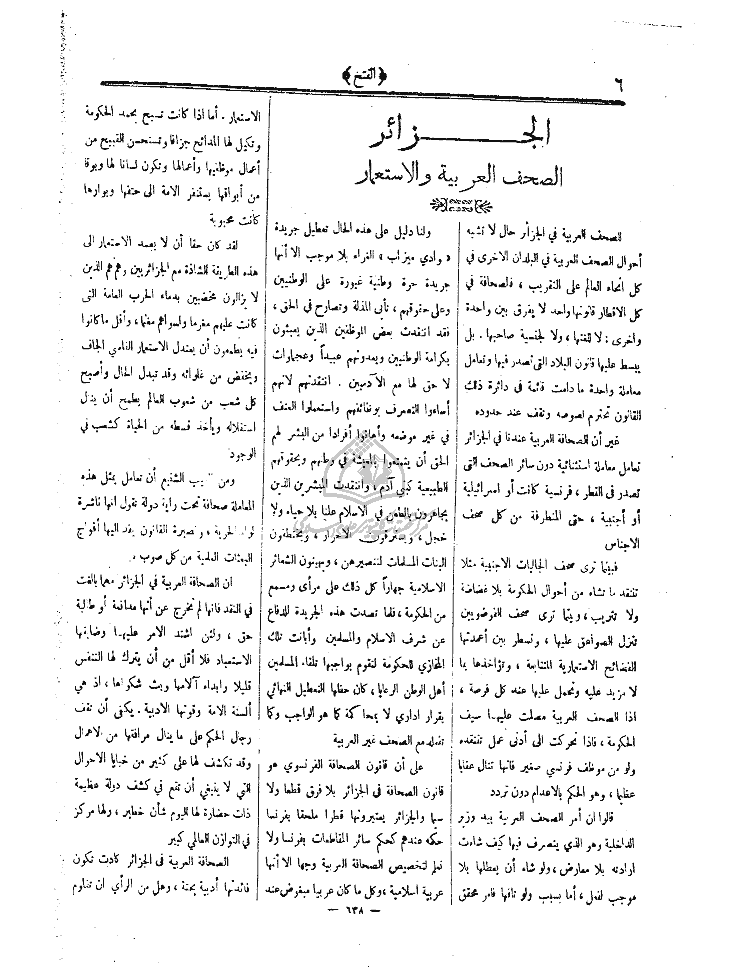 ٦
﴿ الفتح ﴾
الجزائر
الصحف العربية والاستعمار
للصحف العربية في الجزائر حال لا تشبه
أحوال الصحف العربية في البلدان الاخرى في
كل انحاء العالم على التقريب ، فلصحافة في
كل الاقطار قانونها واحد لا يفرق بين واحدة
واخرى : لا للغتها ، ولا لجنسية صاحبها . بل
يبسط عليها قانون البلاد التى تصدر فيها وتعامل
معاملة واحدة ما دامت قائمة في دائرة ذلك
القانون تحترم نصوصه وتقف عند حدوده
غير أن للصحافة العربية عندنا في الجزائر
تعامل معاملة استثنائية دون سائر الصحف التى
تصدر في القطر ، فرنسية كانت أو اسرائيلية
أو أجنبية ، حتى المتطرفة من كل صحف
الاجناس
فبينما ترى صحف الجاليات الاجنبية مثلا
تنتقد ما تشاء من أحوال الحكومة بلا غضاضة
ولا تثريب ، وبينما ترى صحف الفرضويين
تنزل الصواعق عليها ، وتسطر بين أعمدتها
الفضائح الاستعمارية المتتابعة ، وتؤاخذها بما
لا مزيد عليه وتحمل عليها عند كل فرصة ،
اذا الصحف العربية مصلت عليها سيف
الحكومة ، فاذا تحركت الى أدنى عمل تنتقده
ولو من موظف فرنسي صغير فانها تنال عقابا
عقابها ، وهو الحكم بالاعدام دون تردد
قالوا ان أمر الصحف العربية بيد وزير
الداخلية وهو الذي يتصرف فيها كيف شاءت
ارادته بلا معارض ، ولو شاء أن يعطلها بلا
موجب لفعل ، أما بسبب ولو تافها فأمر محقق
ولنا دليل على هذه الحال تعطيل جريدة
« وادي ميزاب » الغراء بلا موجب الا أنها
جريدة حرة وطنية غيورة على الوطنيين
وعلى حقوقهم ، تأبى المذلة وتصارح في الحق ،
فقد انتقدت بعض الموظفين الذين يعبثون
بكرامة الوطنيين ويعدونهم عبيداً وعجماوات
لا حق لها مع الآدميين . انتقدتهم لانهم
أساءوا التصرف بوظائفهم واستعملوا العنف
في غير موضعه وأهانوا أفرادا من البشر لهم
الحق أن يتمتعوا بالعيشة في وطنهم وبحقوقهم
الطبيعية كبني آدم ، وانتقدت المبشرين الذين
يجاهرون بالطعن في الاسلام علنا بلا حياء ولا
خجل ، ويسترقون الاحرار ، ويختطفون
البنات المسلمات لتنصيرهن ، ويهينون الشعائر
الاسلامية جهاراً كل ذلك على مرأى ومسمع
من الحكومة ، فلما تصدت هذه الجريدة للدفاع
عن شرف الاسلام والمسلمين وأبانت تلك
المخازي للحكومة لتقوم بواجبها تلقاء المسلمين
أهل الوطن الرعايا ، كان حقها التعطيل النهائي
بقرار اداري لا بمحاكمة كما هو الواجب وكما
تفعله مع الصحف غير العربية
على أن قانون الصحافة الفرنسوي هو
قانون الصحافة في الجزائر بلا فرق قطعا ولا
سيما والجزائر يعتبرونها قطرا ملحقا بفرنسا
حكمه عندهم كحكم سائر المقاطعات بفرنسا ولا
نعلم لتخصيص الصحافة العربية وجها الا أنها
عربية اسلامية ، وكل ما كان عربيا مبغوض عند
الاستعمار . أما اذا كانت تسبح بحمد الحكومة
وتكيل لها المدائح جزافا وتستحسن القبيح من
أعمال موظفيها وأعمالها وتكون لسانا لها وبوقا
من أبواقها يستنفر الامة الى حتفها وبوارها
كانت محبوبة
لقد كان حقا أن لا يعمد الاستعمار الى
هذه الطريقة الشاذة مع الجزائريين وهم هم الذين
لا يزالون مخضبين بدماء الحرب العامة التى
كانت عليهم مغرما ولسواهم مغنما ، وأقل ما كانوا
فيه يطمعون أن يعتدل الاستعمار القاسي الجاف
ويخفض من غلوائه وقد تبدل الحال وأصبح
كل شعب من شعوب العالم يطمح أن ينال
استقلاله ويأخذ قسطه من الحياة كشعب في
الوجود
ومن العيب الشنيع أن تعامل بمثل هذه
المعاملة صحافة تحت راية دولة تقول انها ناشرة
لواء الحرية ، ونصيرة القانون يفد اليها أفواج
البعثات العلمية من كل صوب ،
ان الصحافة العربية في الجزائر مهما بالغت
في النقد فانها لم تخرج عن أنها مدافعة أو طالبة
حق ، ولئن اشتد الامر عليها وضايقها
الاستعباد فلا أقل من أن يترك لها التنفس
قليلا وابداء آلامها وبث شكواها ، اذ هي
ألسنة الامة وقوتها الادبية . يكفى أن تقف
رجال الحكم على ما ينال مرافقها من الاهمال
وقد تكشف لها على كثير من خبايا الاحوال
التي لا ينبغي أن تقع في كنف دولة عظيمة
ذات حضارة لها اليوم شأن خطير ، ولها مركز
في التوازن العالمي كبير
الصحافة العربية في الجزائر كادت تكون
فائدتها أدبية بحتة ، وهل من الرأي ان تقاوم
— ٦٣٨ —